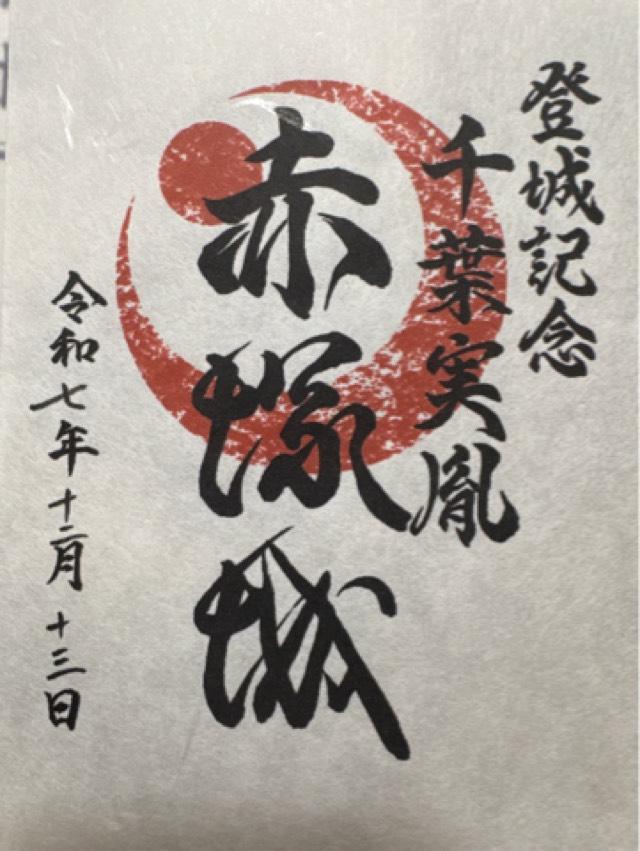 登城記念
千葉実胤
赤塚城
令和七年十二月十三日